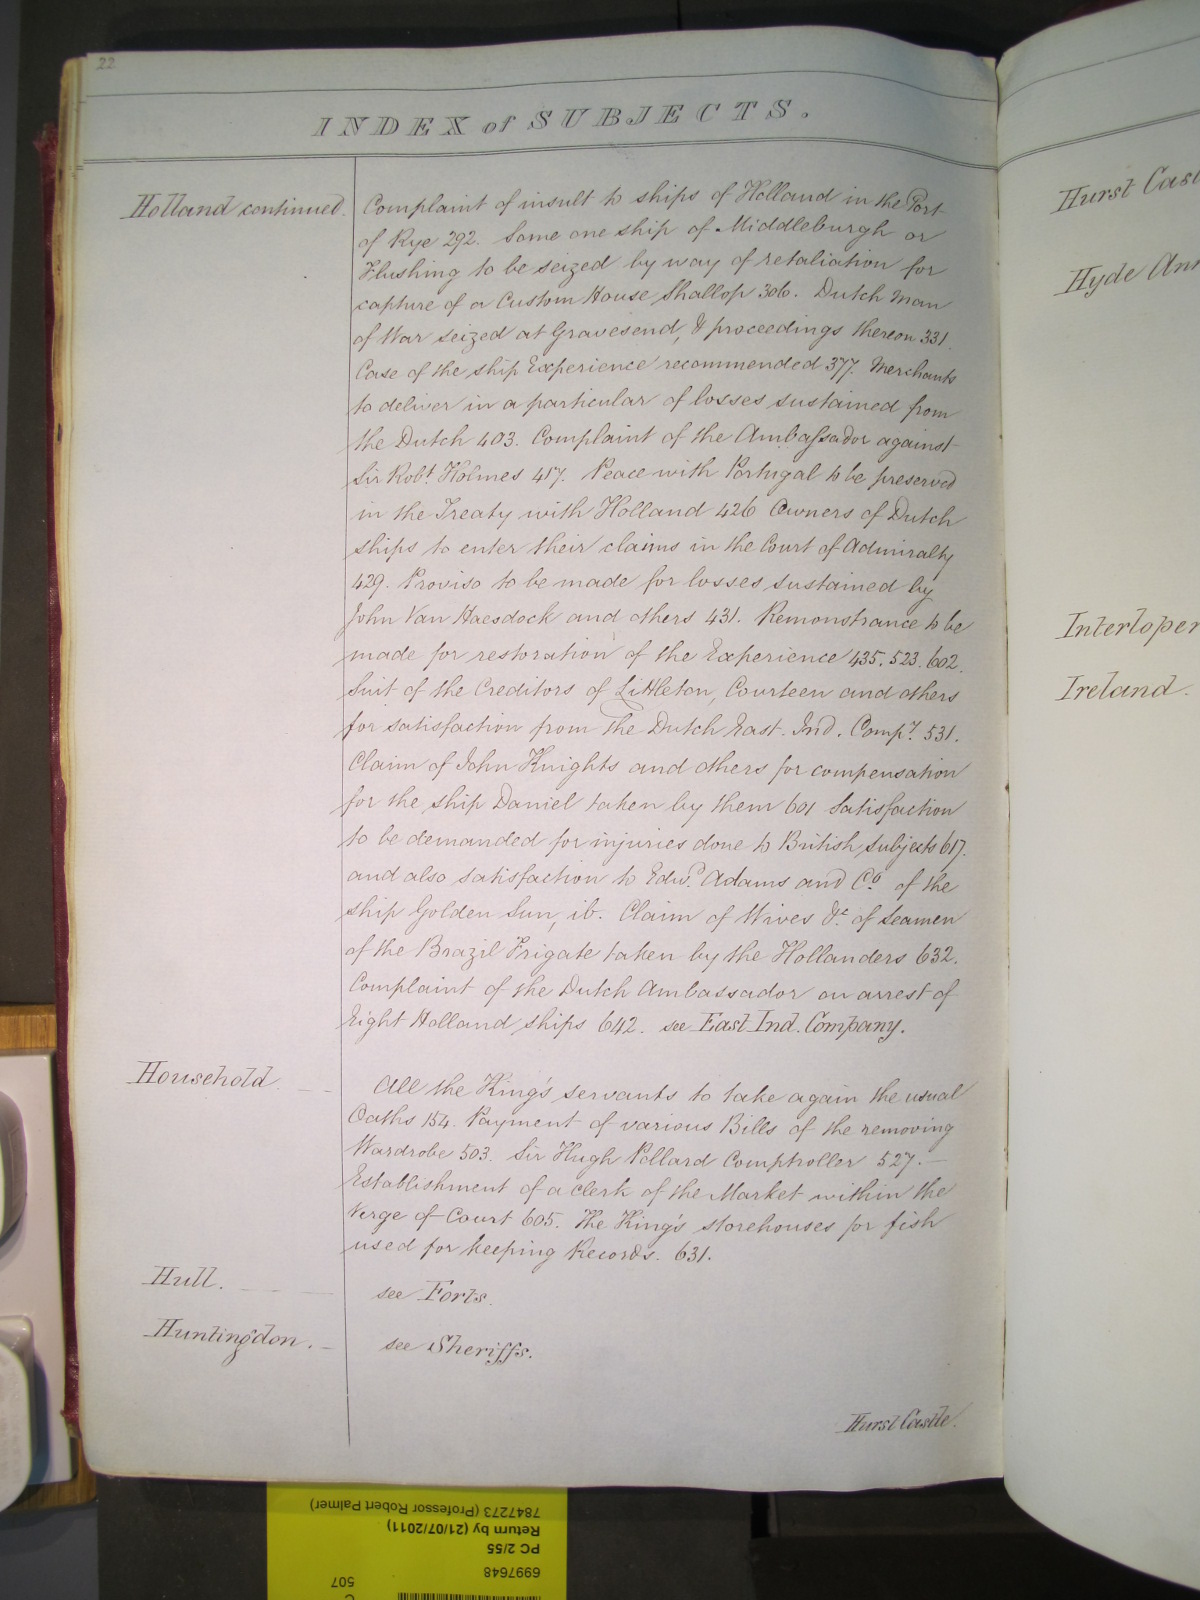 22
INDEX of SUBJECTS.
Holland continued.
Complaint of insult to ships of Holland in the Port
of Rye 292. Some one ship of Middleburgh or
Flushing to be seized by way of retaliation for
capture of a Custom House Shallop 306. Dutch Man
of War seized at Gravesend, & proceedings thereon 331.
Case of the ship Experience recommended 377. Merchants
to deliver in a particular of losses sustained from
the Dutch 403. Complaint of the Ambassador against
Sir Robt. Holmes 417. Peace with Portugal to be preserved
in the Treaty with Holland 426 Owners of Dutch
ships to enter their claims in the Court of Admiralty
429. Proviso to be made for losses sustained by
John Van Haesdock and others 431. Remonstrance to be
made for restoration of the Experience 435. 523. 602.
Suit of the Creditors of Littleton, Courteen and others
for satisfaction from the Dutch East. Ind. Compy. 531.
Claim of John Knights and others for compensation
for the ship Daniel taken by them 601 Satisfaction
to be demanded for injuries done to British subjects 617.
and also satisfaction to Edwd. Adams and Co. of the
ship Golden Sun, ib. Claim of Wives &c. of Seamen
of the Brazil Frigate taken by the Hollanders 632.
Complaint of the Dutch Ambassador on arrest of
Eight Holland ships 642. see East Ind. Company.
Household
All the King's servants to take again the usual
Oaths 154. Payment of various Bills of the removing
Wardrobe 503. Sir Hugh Pollard Comptroller 527.—
Establishment of a clerk of the Market within the
Verge of Court 605. The King's storehouses for fish
used for keeping Records. 631.
Hull.
see Forts.
Huntingdon.
see Sheriffs.
Hurst Castle.
Hurst Cast
Hyde Ann
Interloper
Ireland.
507
6997648
PC 2/55
Return by (21/07/2011)
7847273 (Professor Robert Palmer)